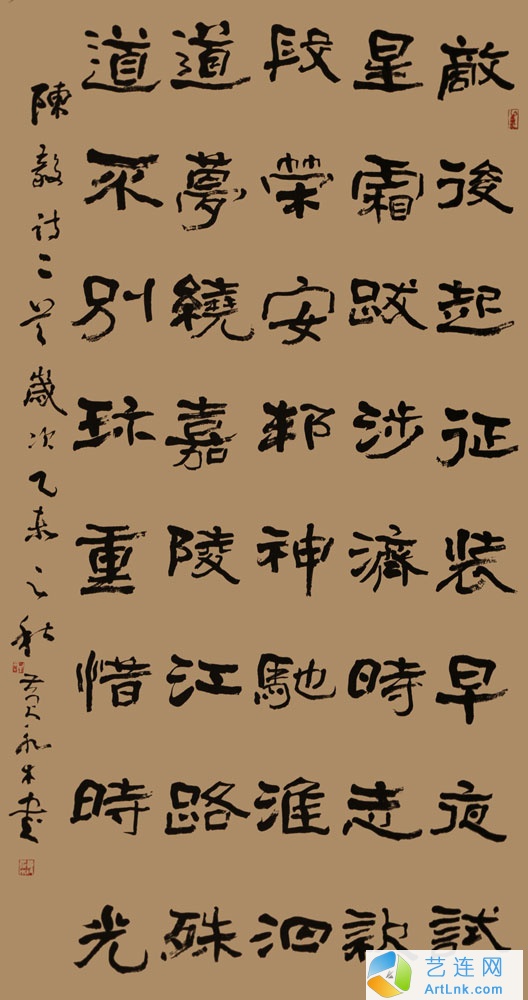 敵後起征裝早夜試
星霜跋涉濟時走
段榮安邦神馳淮泗
道夢繞嘉陵江路殊
道不別珍重惜時光
陳毅詩二首歲次乙未之秋
艺连网
ArtLnk.com